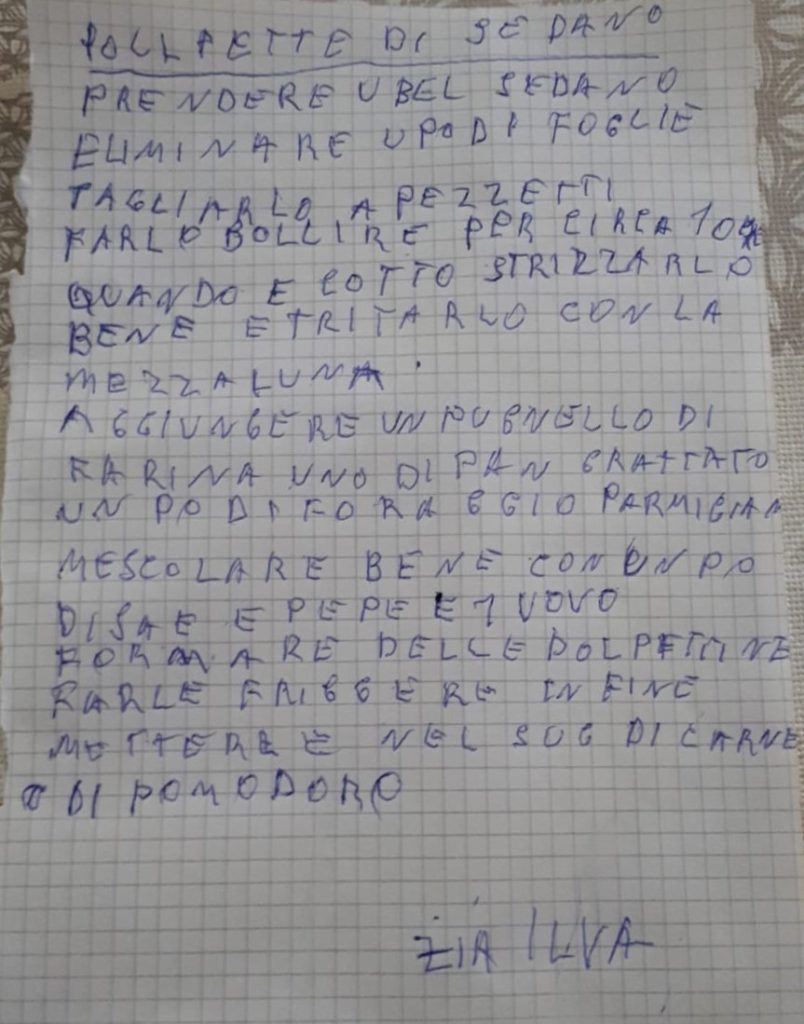 POLLPETTE DI SEDANO
PRENDERE U BEL SEDANO
ELIMINARE UPODI FOGLIE
TAGLIARLO A PEZZETTI
FARLO BOLLIRE PER CIRCA 10
QUANDO E COTTO STRIZZARLO
BENE E TRITARLO CON LA
MEZZALUNA.
AGGIUNGERE UN PUGNELLO DI
FARINA UNO DI PAN GRATTATO
UN PO DI FORAGGIO PARMIGIAN
MESCOLARE BENE CON UN PO
DI SAE E PEPE E 1 UOVO
FORMARE DELLE POLPETTINE
FARLE FRIGGERE IN FINE
METTERLE NEL SUG DI CARNE
O DI POMODORO
ZIA ILVA